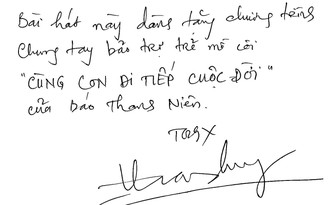 Bài hát này dàng tặng chương trình
Chung tay bảo trợ trẻ mồ côi
"CÙNG CON ĐI TIẾP CUỘC ĐỜI"
của báo Thanh Niên.